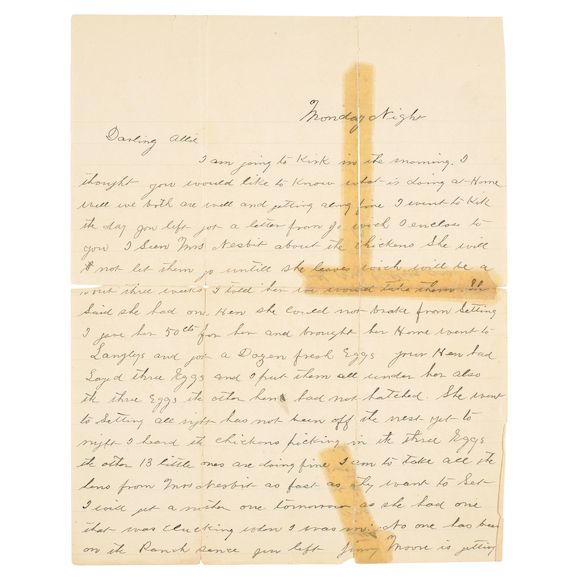 Monday Night
Darling Allie
I am going to Kirk in the morning. I
thought you would like to Know what is doing at Home
well we both are well and getting along fine I went to Kirk
the day you left got a letter from Jo wich I enclose to
you I Seen Mrs Nesbit about the chickens She will
not let them go untill she leaves wich will be a
bout three weeks I told her we would take them. She
Said she had on Hen she could not brake from Setting
I gave her 50cts for her and brought her Home went to
Langleys and got a Dozen fresh Eggs your Hen had
Layed three Eggs and I put them all under her also
the three Eggs the other hen had not hatched. She went
to Setting all right has not been off the nest yet to
night I heard the chickens picking in the three Eggs
the other 13 little ones are doing fine I am to take all the
hens from Mrs Nesbit as fast as they want to Set
I will get a nother one tomorrow as she had one
that was clucking when I was in. No one has been
on the Ranch sence you left Jimy Moore is getting